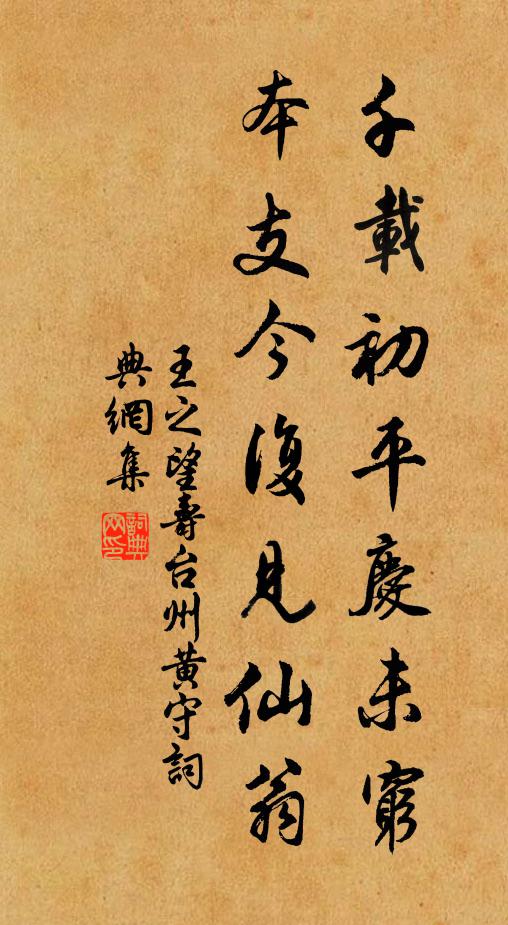 千載初平慶未窮
本支今復見仙翁
王之望壽台州黃守詞
典網集
詞典網印